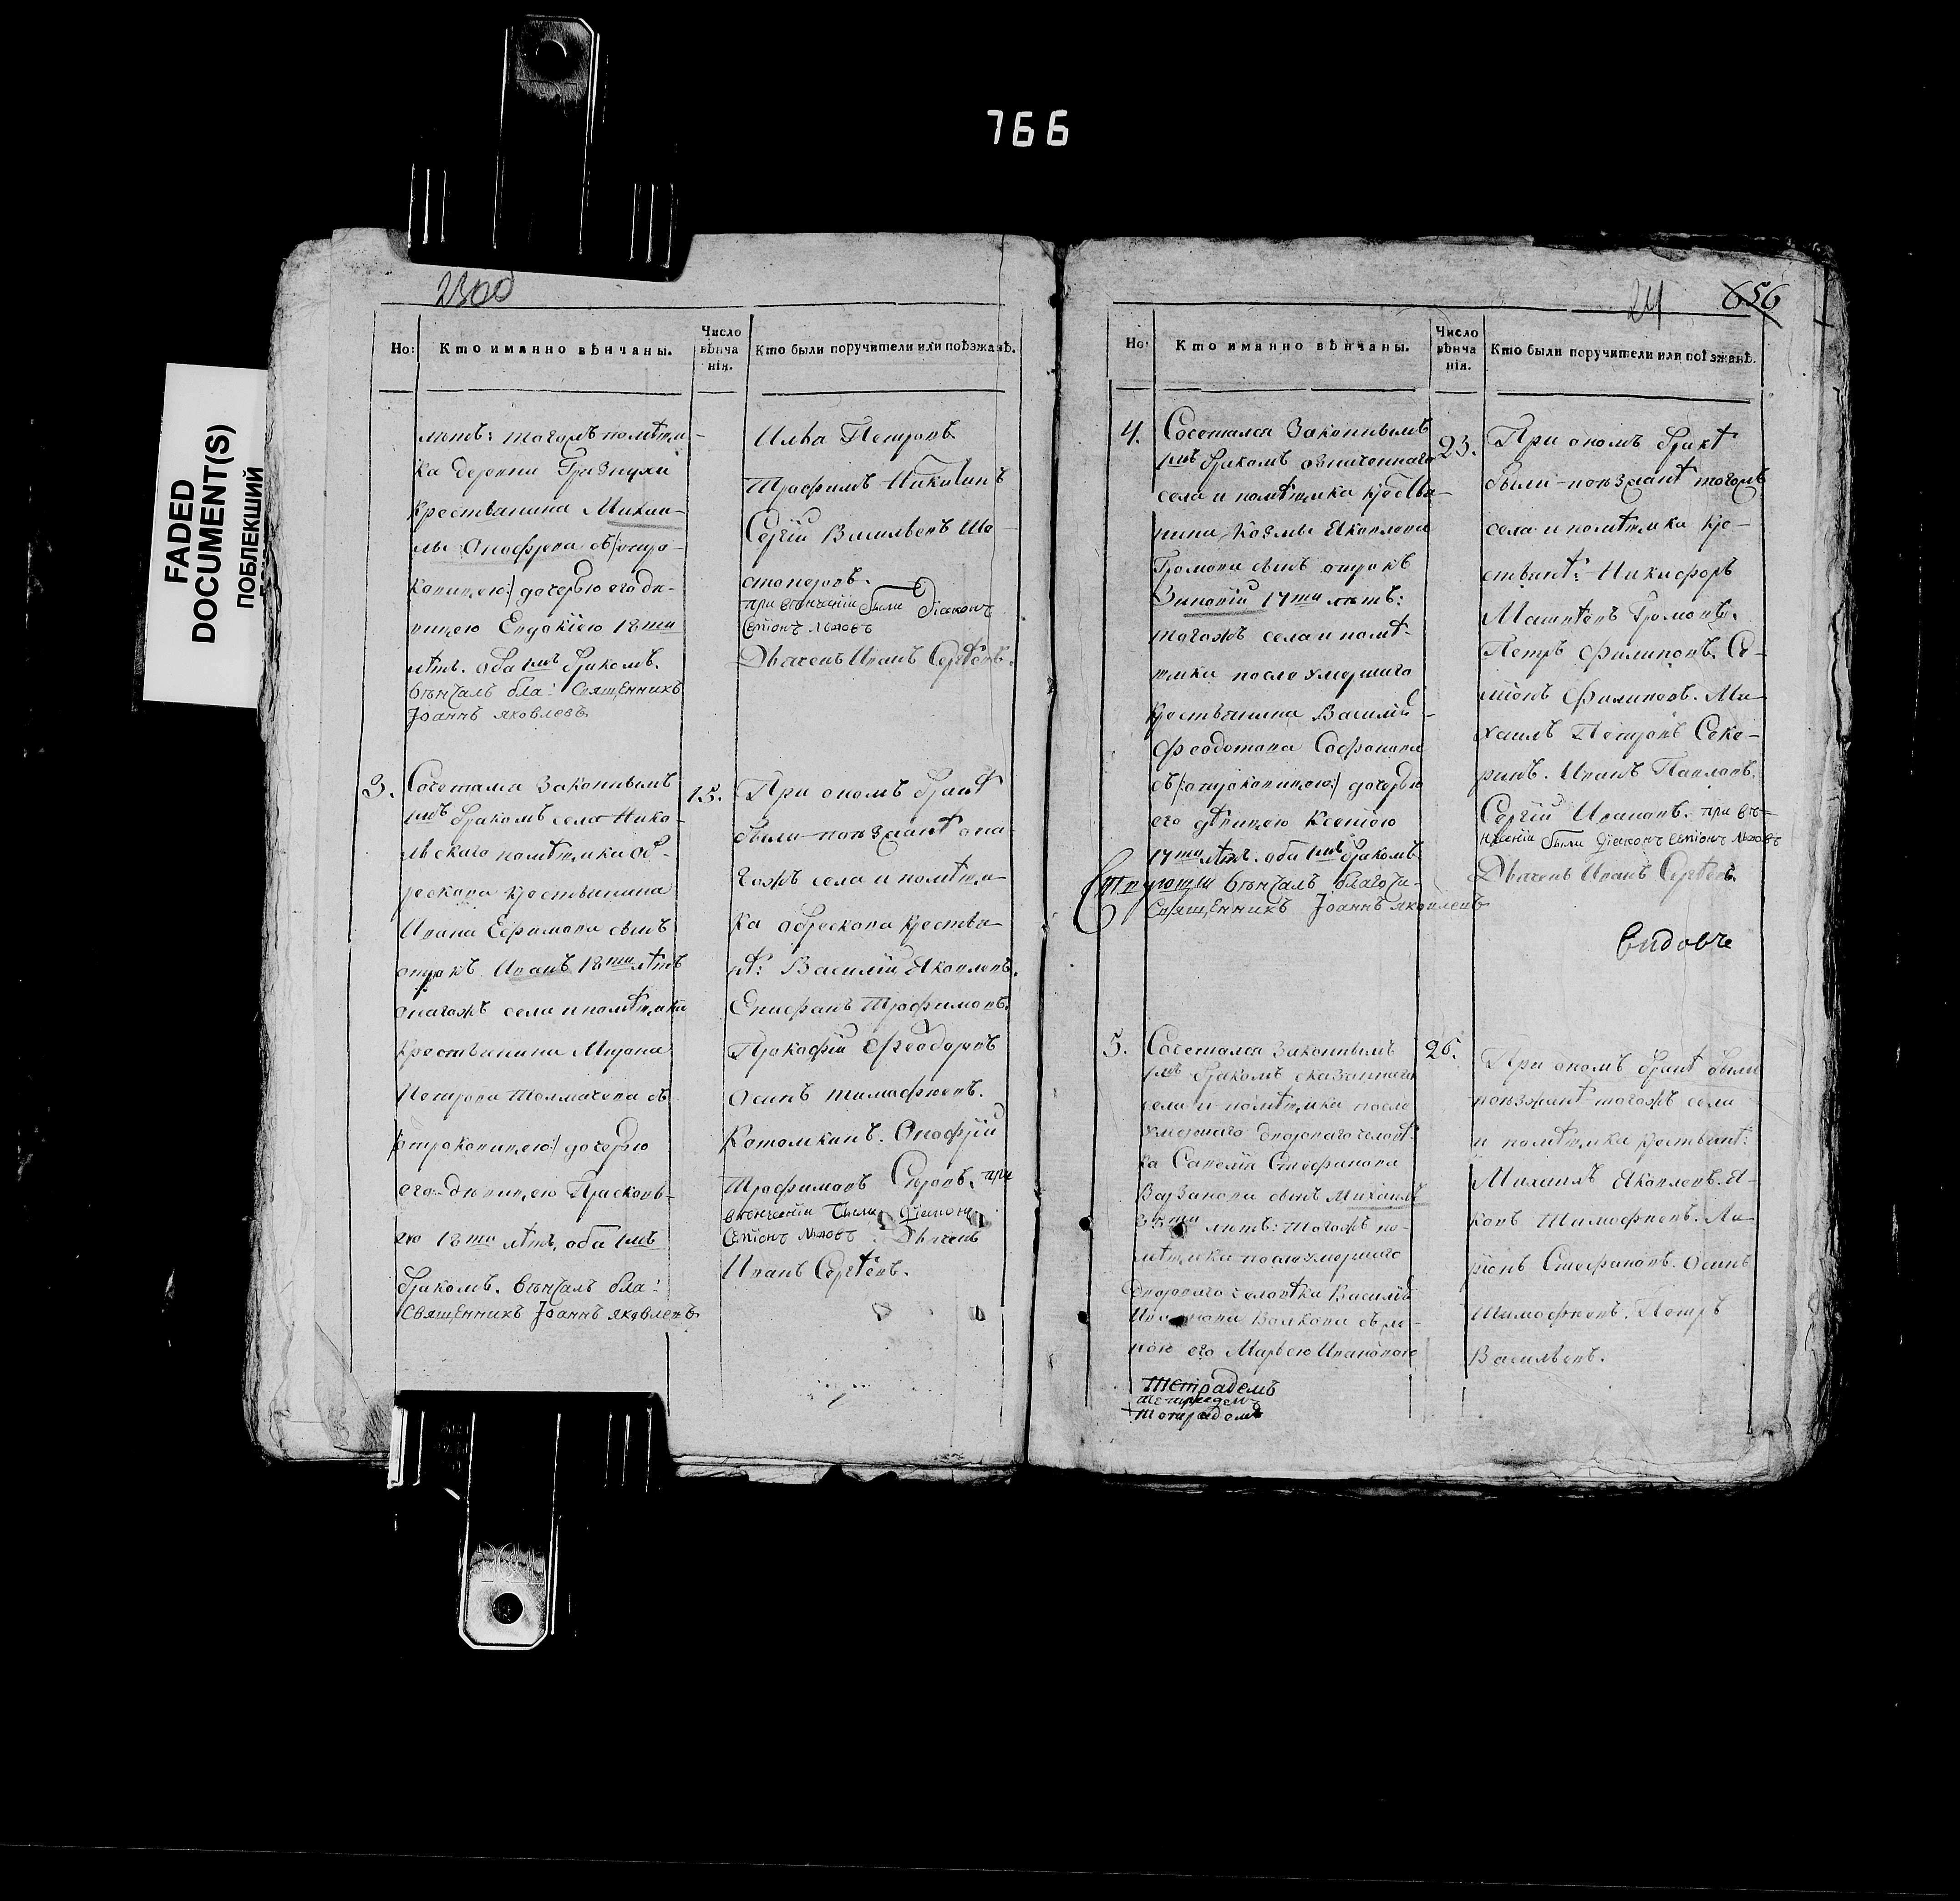 766
FADED
DOCUMENT(S)
ПОБЛЕКШИЙ
2300
Но:
Кто имянно вѣнчаны.
Число вѣнча нія.
Кто были поручители или поѣзжанѣ.
лѣтъ: тогожъ помѣтьи-
ка деревни
крестьянина
Онофрева съ /:отро-
ковицею:/ дочерью его дѣ-
вицею Евдокіею 18ти
лѣтъ. оба 1мъ бракомъ.
вѣнчалъ бла: Священникъ
Іоаннъ Яковлевъ
Илья Петровъ
Трофимъ Никитинъ
Сергій Васильевъ
при вѣнчаніи были Діаконъ
Семіонъ Львовъ
Дьячекъ Иванъ Сергѣевъ.
3.
Сочетался законнымъ
1мъ бракомъ села Нико-
льскаго помѣтьика Об-
рескова крестьянина
Ивана Ефимова сынъ
отрокъ Иванъ 18ти лѣтъ
онагожъ села и помѣтьика
крестьянина Мирона
Петрова Толмачева съ
/:отроковицею:/ дочерью
его дѣвицею Прасковь-
ею 18ти лѣтъ. оба 1мъ
бракомъ. вѣнчалъ бла:
Священникъ Іоаннъ Яковлевъ
15.
При ономъ бракѣ
были поѣзжанѣ она-
гожъ села и помѣтьи-
ка обрескова крестья-
нѣ: Василій Яковлевъ.
Епифанъ Трофимовъ.
Прокофій Ѳеодоровъ
Осипъ Тимофѣевъ.
Котомкинъ. Онофрій
Трофимовъ при
вѣнчаніи были Діаконъ
Семіонъ Львовъ. Дьячекъ
Иванъ Сергѣевъ.
24
656
Но:
Кто имянно вѣнчаны.
Число вѣнча нія.
Кто были поручители или поѣзжанѣ.
4.
Сочетался законнымъ
1мъ бракомъ означеннаго
села и помѣтьика крестья-
нина Козмы Яковлева
Громова сынъ отрокъ
Зиновій 17ти лѣтъ:
тогожъ села и помѣ-
тьика после умершаго
крестьянина Василій
Феодотова Софонова
съ /:отроковицею:/ дочерью
его дѣвицею Ксеніею
17ти лѣтъ. оба 1мъ бракомъ
вѣнчалъ благочи-
Священникъ Іоаннъ Яковлевъ
23.
При ономъ бракѣ
были поѣзжанѣ тогожъ
села и помѣтьика кре-
стьянѣ: Никифоръ
Матвѣевъ Громовъ.
Петръ Филиповъ. Се-
міонъ Филиповъ. Ми-
хаилъ Петровъ
Иванъ Павловъ.
Сергій Ивановъ. при вѣ-
нчаніи были Діаконъ Семіонъ Львовъ
Дьячекъ Иванъ Сергѣевъ.
5.
Сочетался законнымъ
1мъ бракомъ сказаннаго
села и помѣтьика после
умершаго двороваго человѣ-
ка Савелія Стефанова
сынъ Михаилъ
лѣтъ: тогожъ по-
мѣтьика после умершаго
двороваго человѣка Василій
Волкова съ же-
ною его Марьею Ивановою
Тетрадемъ
тетрадемъ
тетрадемъ
26.
При ономъ бракѣ были
поѣзжанѣ тогожъ села
и помѣтьика крестьянѣ:
Михаилъ Яковлевъ. Я-
ковъ Тимофѣевъ. Ла-
ріонъ Стефановъ. Осипъ
Тимофѣевъ. Петръ
Васильевъ.